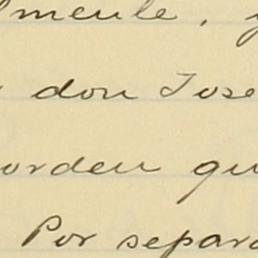 lmente, y
don Jose
orden qu
Por separa